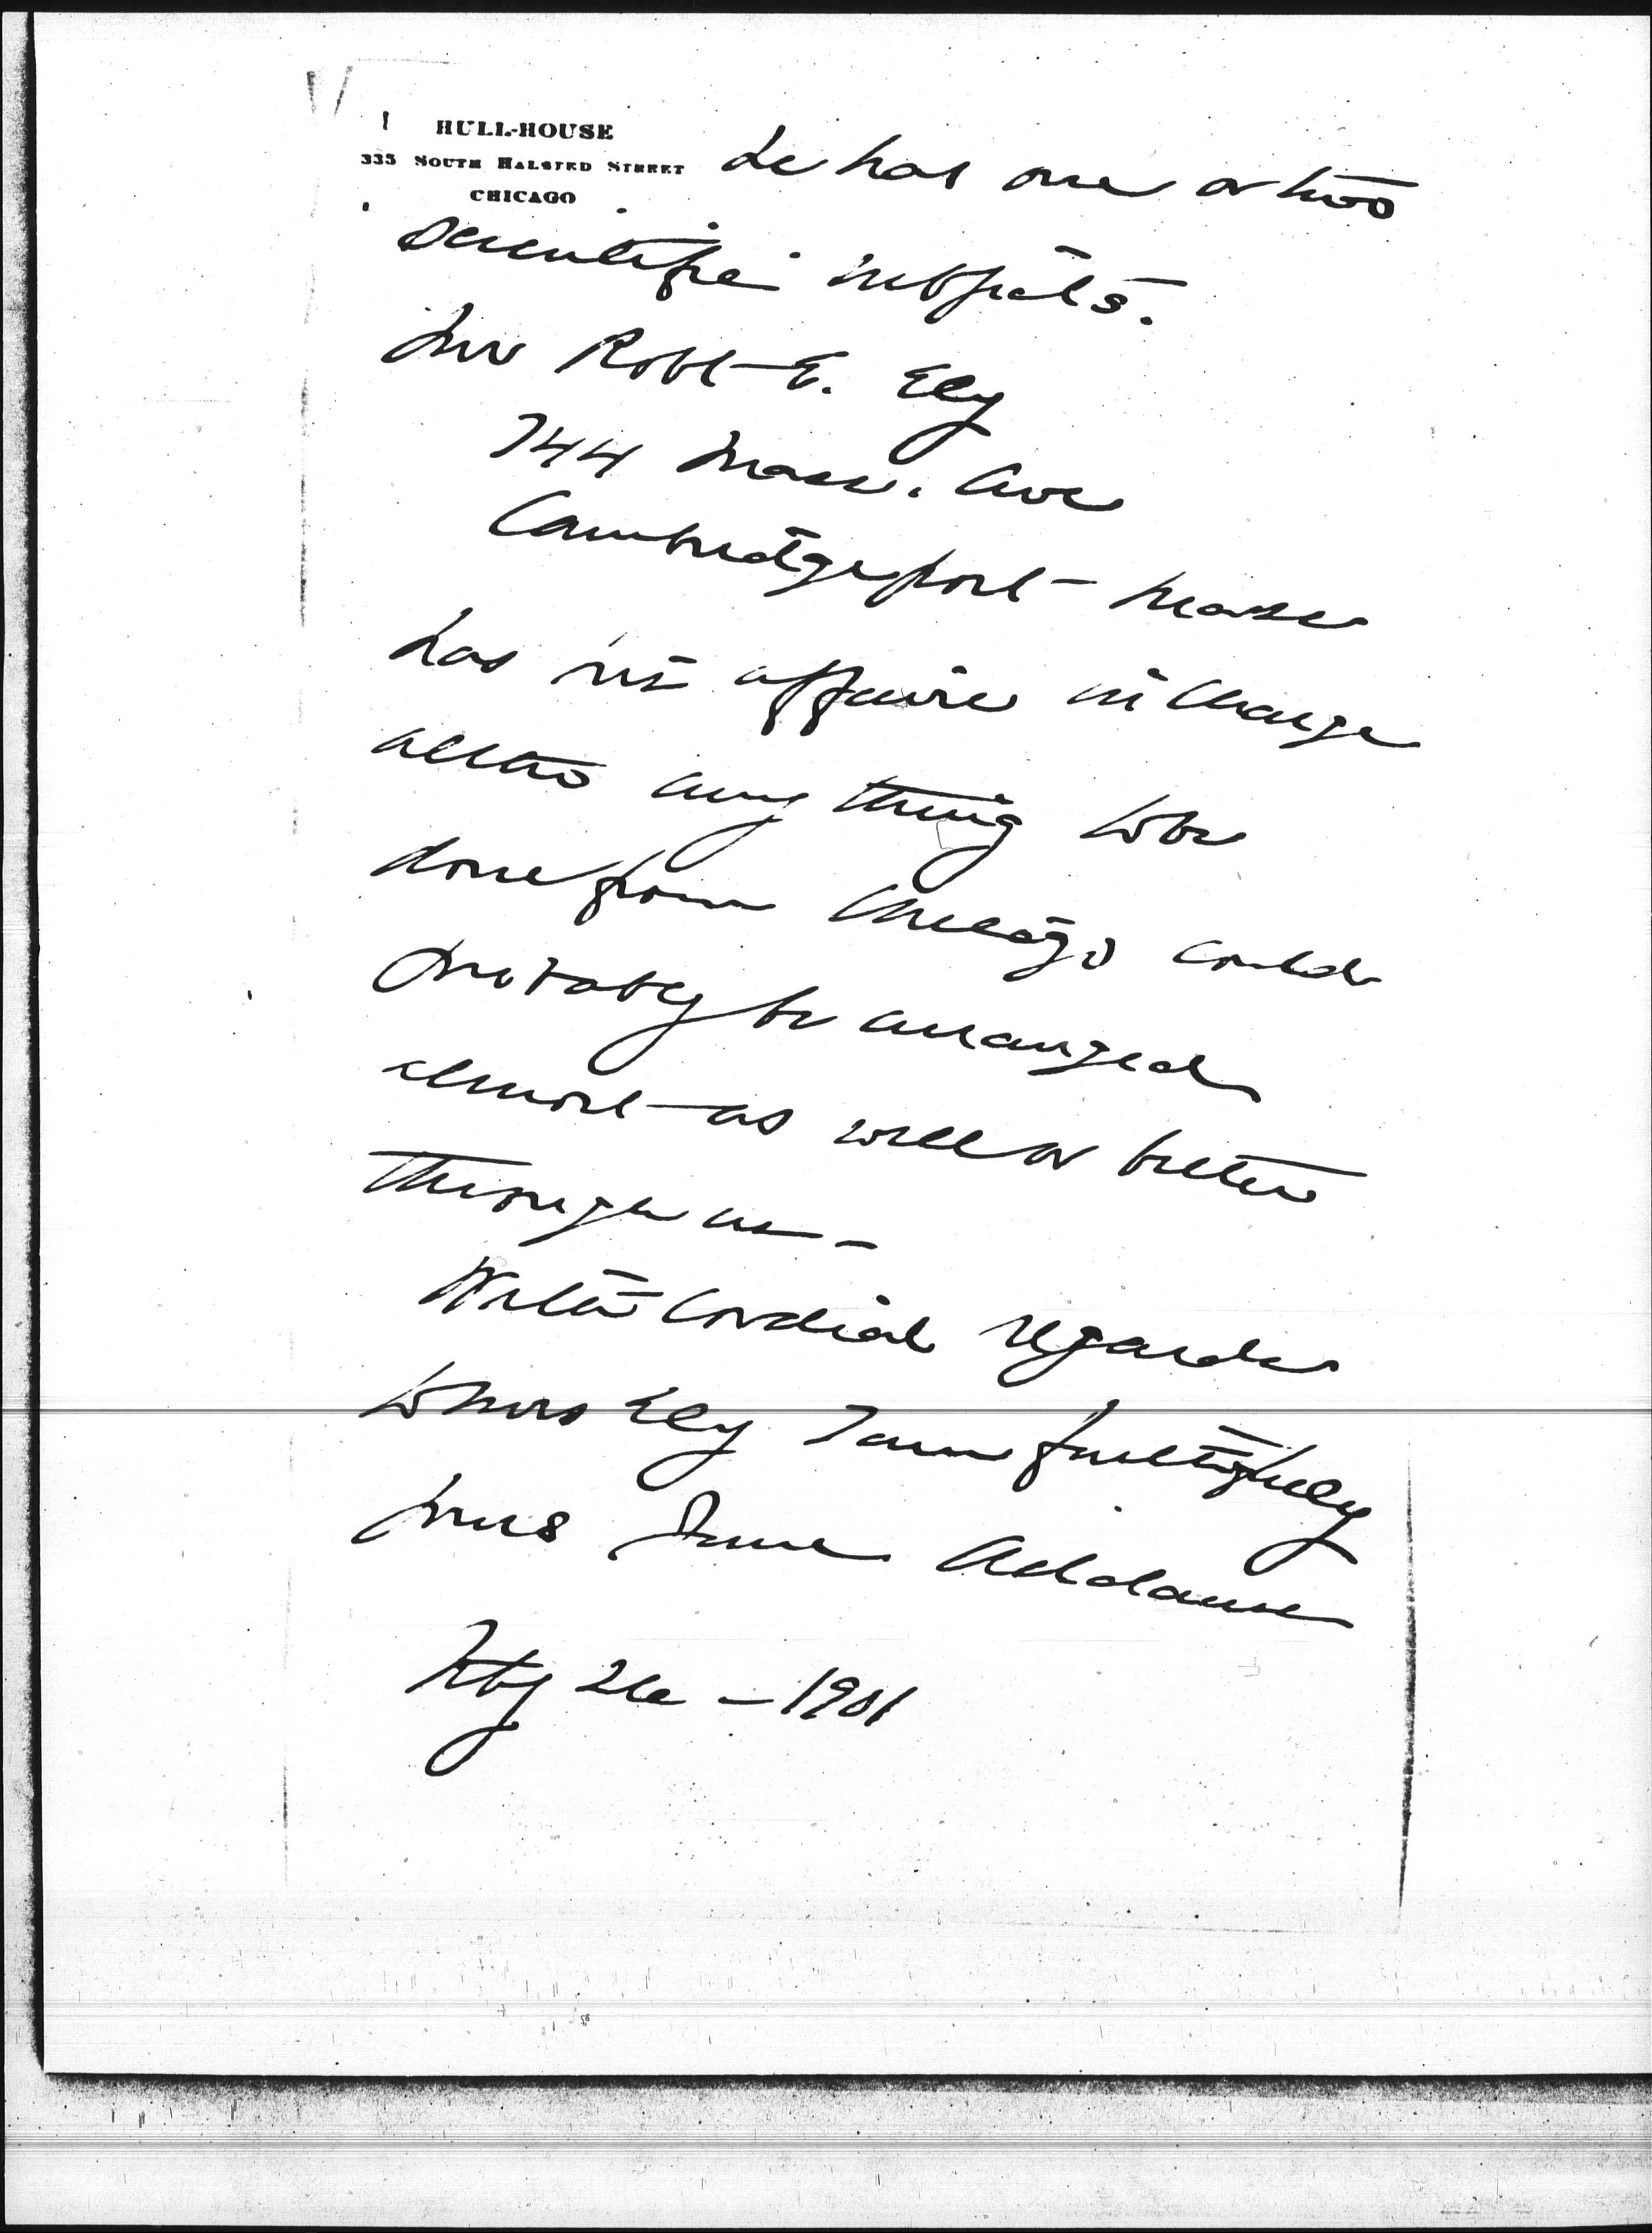 HULL-HOUSE
335 SOUTH HALSTED STREET
CHICAGO
he has one or two
scientific subjects.
Mr Robt E. Ely
744 Mass. Ave
Cambridgeport Mass
has his affairs in charge
altho any thing to be
done from Chicago could
probably be arranged
almost as well or better
through us —
With cordial regards
to Mrs Ely I am faithfully
yours Jane Addams
Feby 26 — 1901